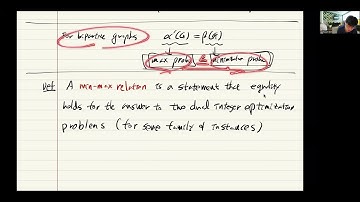 For bipartite graphs α'(G) = β(G)
max prob & minimization prob
Def A min-max relation is a statement that equality
holds for the answer to two dual integer optimization
problems (for some family of instances)